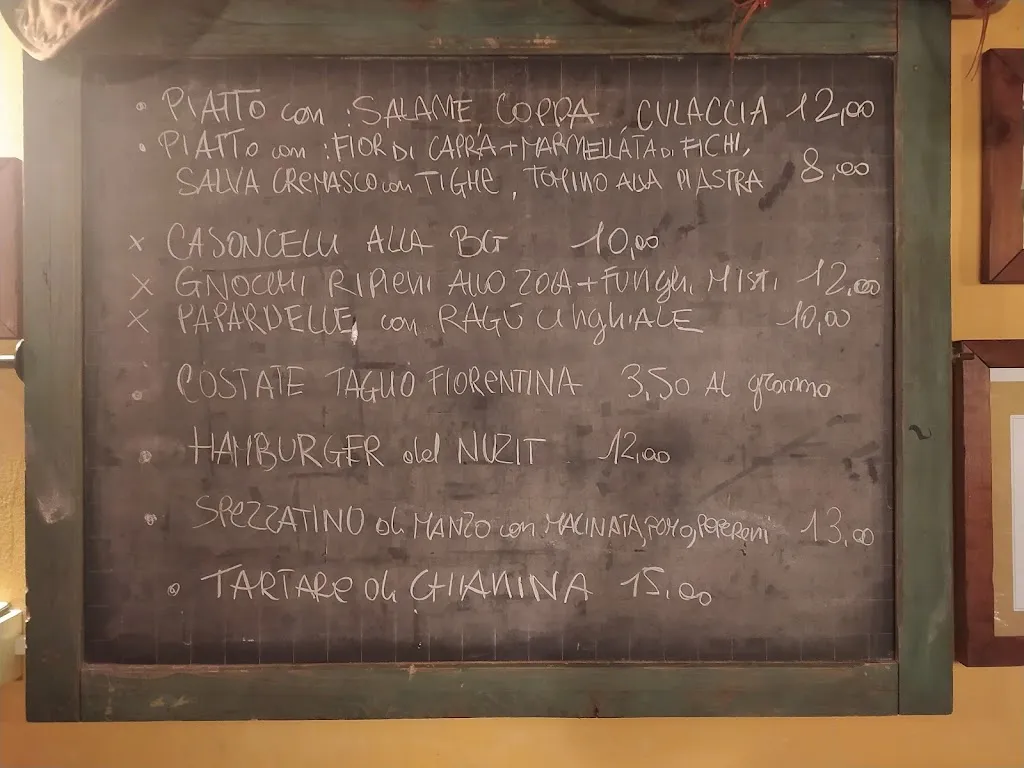 • PIATTO con : SALAME, COPPA, CULACCIA 12,00
• PIATTO con : FIOR DI CAPRA + MARMELLATA DI FICHI,
SALVA CREMASCO con TIGHE, TOMINO ALLA PIASTRA 8,00
x CASONCELLI ALLA BG 10,00
x GNOCCHI RIPIENI ALLO ZOLA + FUNGHI MISTI 12,00
x PAPARDELLE con RAGÙ CINGHIALE 10,00
• COSTATE TAGLIO FIORENTINA 3,50 AL grammo
• HAMBURGER del NUZIT 12,00
• SPEZZATINO di MANZO con MACINATA, porro, peperoni 13,00
• TARTARE di CHIANINA 15,00